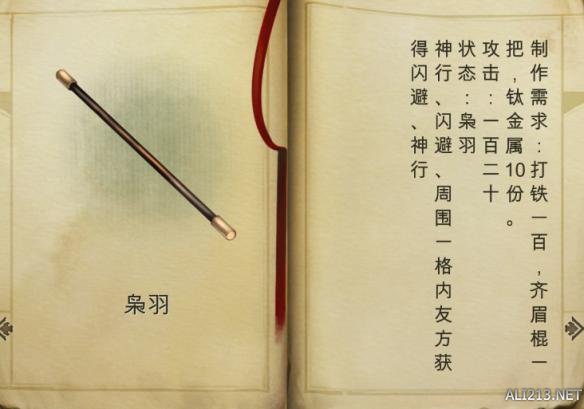 枭羽
制作需求：打铁一百，齐眉棍一
把，钛金属10份。
攻击：一百二十
状态：枭羽
神行、闪避、周围一格内友方获
得闪避、神行
ALI213.NET